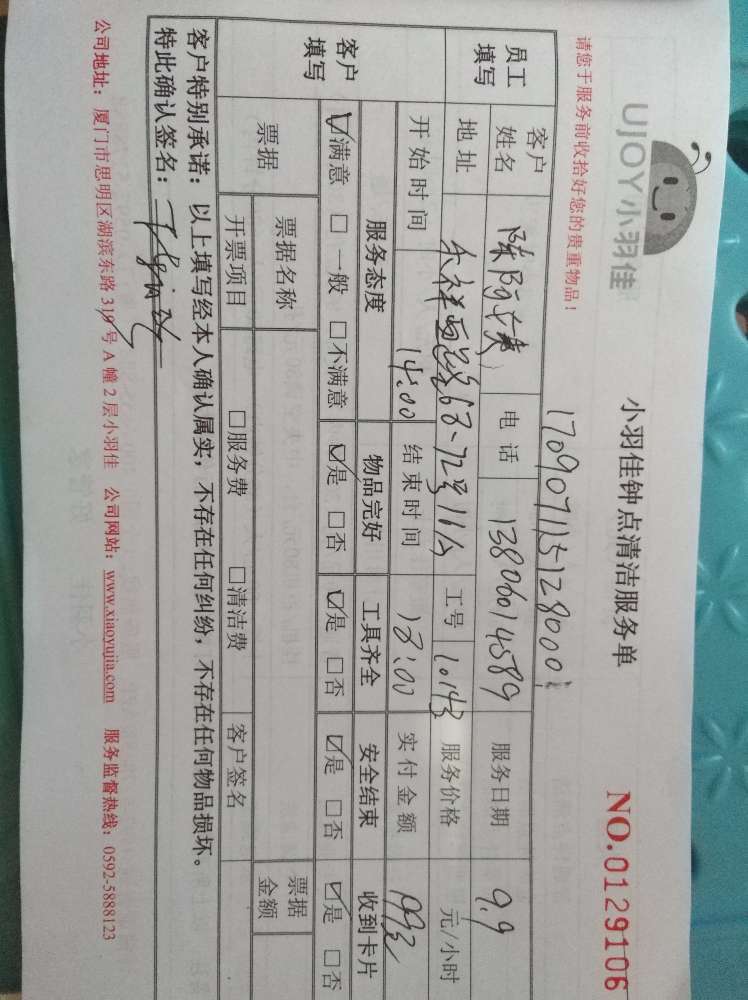 UJOY小羽佳
小羽佳钟点清洁服务单
NO.0129106
请您于服务前收拾好您的贵重物品！
员工填写
客户姓名 陈阿 电话 13806014589 服务日期 9.9
地址 66-72号11A 工号 10143 服务价格 元/小时
开始时间 14:00 结束时间 18:00 实付金额 199元
客户填写
服务态度 物品完好 工具齐全 安全结束 收到卡片
☑满意 □一般 □不满意 ☑是 □否 ☑是 □否 ☑是 □否 ☑是 □否
票据 票据名称 票据金额
开票项目 □服务费 □清洁费 客户签名
客户特别承诺：以上填写经本人确认属实，不存在任何纠纷，不存在任何物品损坏。
特此确认签名：
公司地址：厦门市思明区湖滨东路319号A幢2层小羽佳 公司网站：www.xiaoyujia.com 服务监督热线：0592-5888123